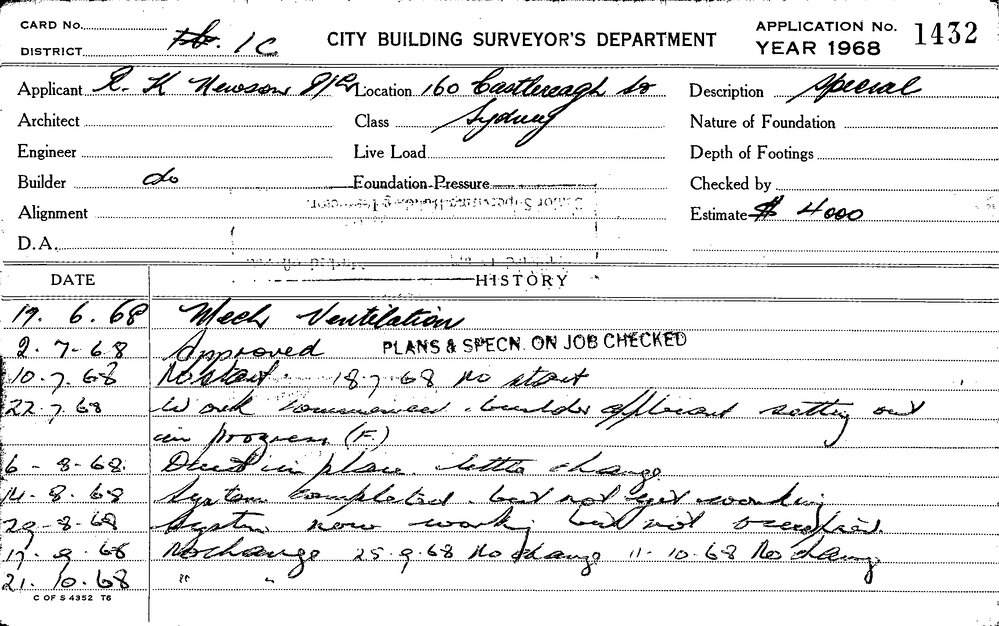 CARD No. CITY BUILDING SURVEYOR'S DEPARTMENT APPLICATION No. 1432
DISTRICT 1C YEAR 1968
Applicant R. K Newson P/L Location 160 Castlereagh St Description Special
Architect Class Sydney Nature of Foundation
Engineer Live Load Depth of Footings
Builder do Foundation Pressure Checked by
Alignment Estimate $ 4000
D.A.
DATE HISTORY
19. 6. 68 Mech Ventilation
2. 7. 68 Approved PLANS & SPECN. ON JOB CHECKED
10. 7. 68 No start 18 7 68 No start
22. 7. 68 Work commenced. builder applicant setting out
in progress (F.)
6 - 8 - 68. Duct in place. little change
14. 8. 68 System completed. but not yet working
29 - 8 - 68 System now working but not occupied.
17. 9. 68 No change 25 9. 68 No change 11 - 10. 68 No change
21. 10. 68 " "
C OF S 4352 T6